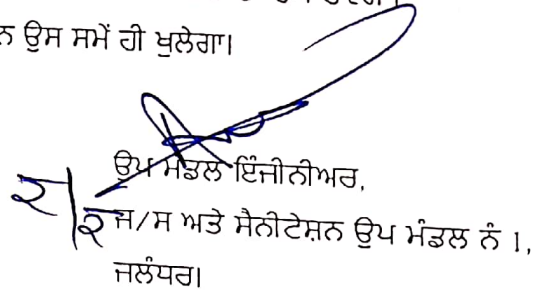 ਉਸ ਸਮੇਂ ਹੀ ਖੁਲੇਗਾ।
ਉਪ ਮੰਡਲ ਇੰਜੀਨੀਅਰ,
ਜ/ਸ ਅਤੇ ਸੈਨੀਟੇਸ਼ਨ ਉਪ ਮੰਡਲ ਨੰ 1,
ਜਲੰਧਰ।